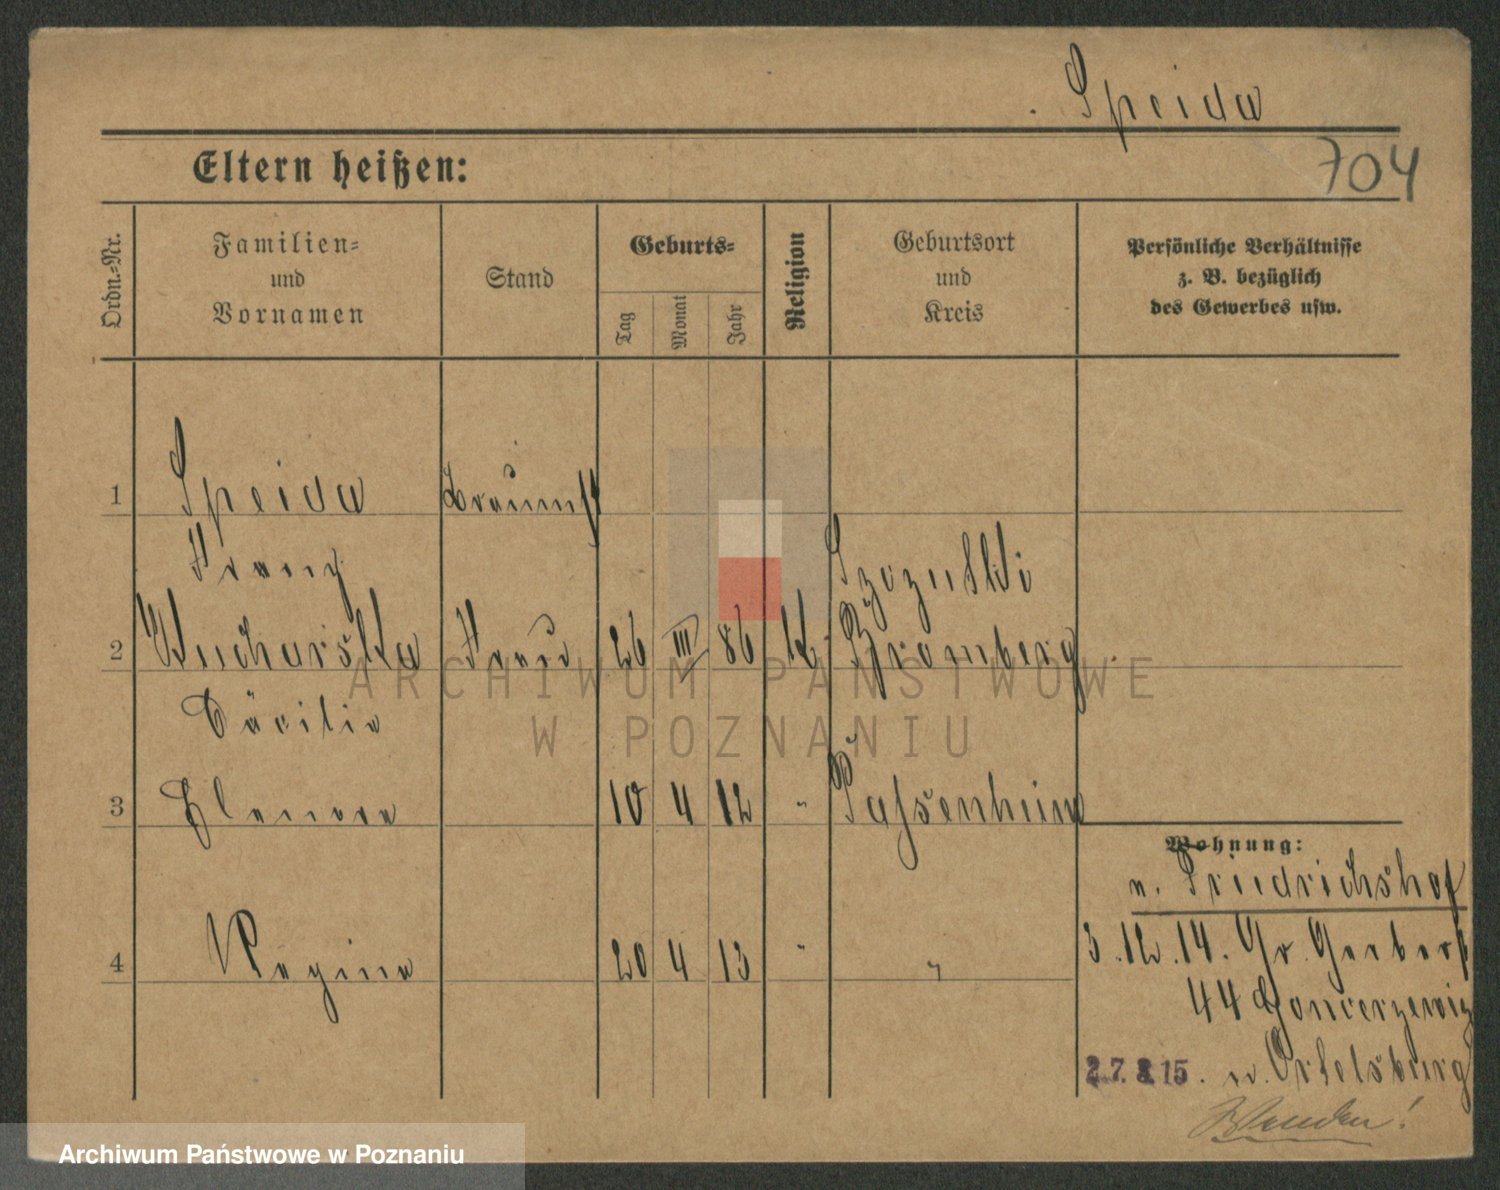 Speida
704
Eltern heißen:
Ordn.-Nr.
Familien-
und
Vornamen
Stand
Geburts-
Tag
Monat
Jahr
Religion
Geburtsort
und
Kreis
Persönliche Verhältnisse
z. B. bezüglich
des Gewerbes usw.
1 Speida
Franz
2 Kucharska Frau 26 III 86 K. Bromberg
Cäcilie
3 Elenore 10 4 12 " Passenheim
4 Regine 20 4 13 " "
Wohnung:
n. Friedrichshof
3.12.14. Gr. Gerberst
44
27. 3. 15. n. Ortelsburg
Wenden!
ARCHIWUM PAŃSTWOWE
W POZNANIU
Archiwum Państwowe w Poznaniu